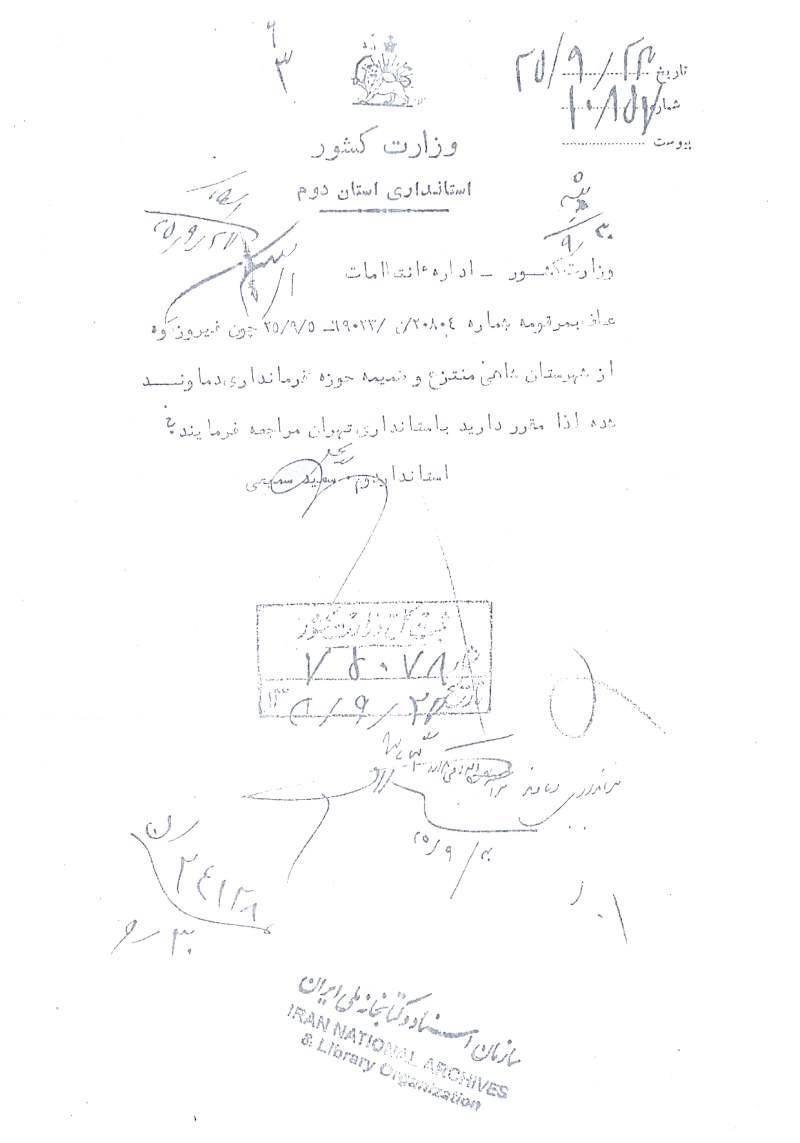 ۶
۳
تاریخ ۲۵/۹/۲۳
شماره ۱۰۸۵۷
پیوست
وزارت کشور
استانداری استان دوم
۳۰/۹
۲۵/۹/۲۷
وزارت کشور - اداره انتظامات
عطف بمرقومه شماره ۲۰۸۰۴/ن /۱۹۰۲۳ - ۲۵/۹/۵ چون فیروزکوه
از شهرستان شاهی منتزع و ضمیمه حوزه فرمانداری دماوند
شده لذا مقرر دارید باستانداری تهران مراجعه فرمایند
استاندار دوم - سمیعی
ثبت کل وزارت کشور
شماره ۷۵۰۷۸
تاریخ ۲۷/۹/ ۱۳
فرمانداری دماوند
۲۵/۹/۳۰
ن
۲۴۱۲۸
۳۰
سازمان اسناد و کتابخانه ملی ایران
IRAN NATIONAL ARCHIVES
& Library Organization